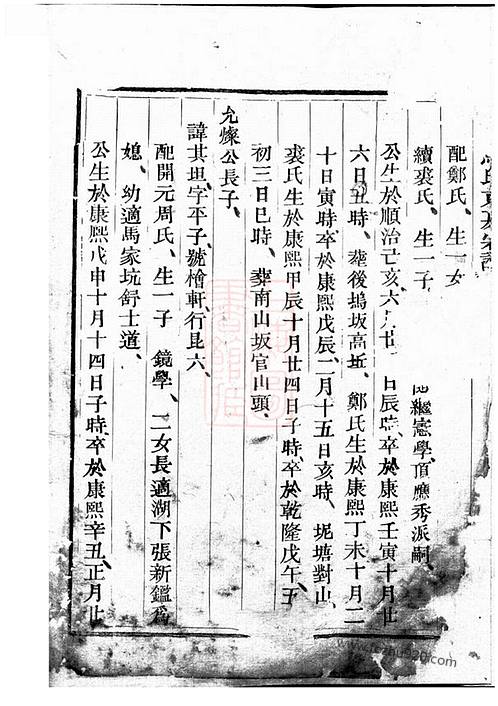 配鄭氏、生一女
續裘氏、生一子　繼憲學、頂應秀派嗣、
公生於順治己亥六月廿　日辰時、卒於康熙壬寅十月廿
六日丑時、葬後塢坂高坵、鄭氏生於康熙丁未十月二
十日寅時、卒於康熙戊辰二月十五日亥時、坭塘對山、
裘氏生於康熙甲辰十月廿四日子時、卒於乾隆戊午、五
初三日巳時、葬南山坂官山頭、
允燦公長子、
諱其坦、字平子、號檜軒、行昆六、
配開元周氏、生一子　鏡學、二女長適湖下張新鑑爲
媳、幼適馬家坑舒士道、
公生於康熙戊申十月十四日子時卒於康熙辛丑、正月廿